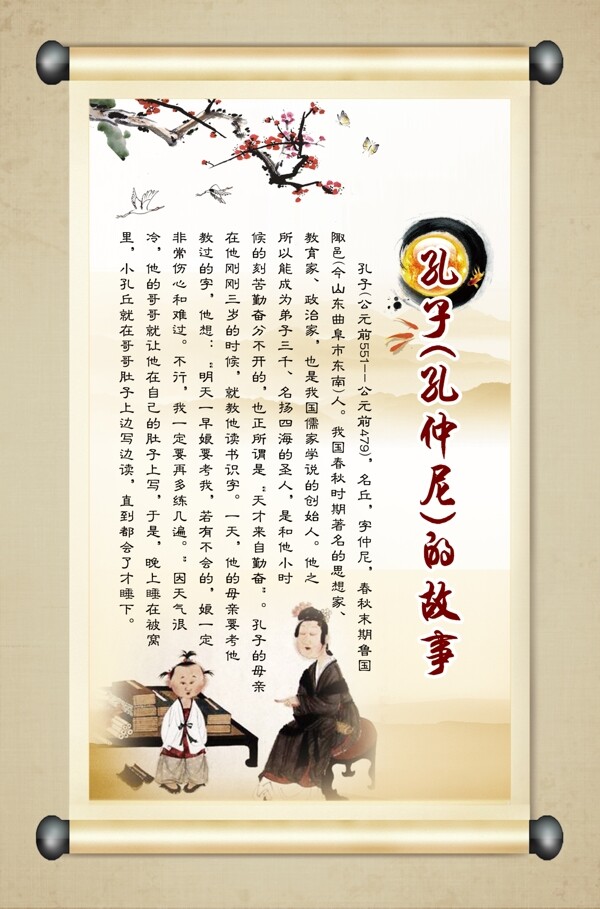 孔子(孔仲尼)的故事
孔子(公元前551——公元前479)，名丘，字仲尼，春秋末期鲁国
陬邑(今山东曲阜市东南)人。我国春秋时期著名的思想家、
教育家、政治家，也是我国儒家学说的创始人。他之
所以能成为弟子三千、名扬四海的圣人，是和他小时
候的刻苦勤奋分不开的，也正所谓是“天才来自勤奋”。孔子的母亲
在他刚刚三岁的时候，就教他读书识字。一天，他的母亲要考他
教过的字，他想：“明天一早娘要考我，若有不会的，娘一定
非常伤心和难过。不行，我一定要再多练几遍。”因天气很
冷，他的哥哥就让他在自己的肚子上写，于是，晚上睡在被窝
里，小孔丘就在哥哥肚子上边写边读，直到都会了才睡下。